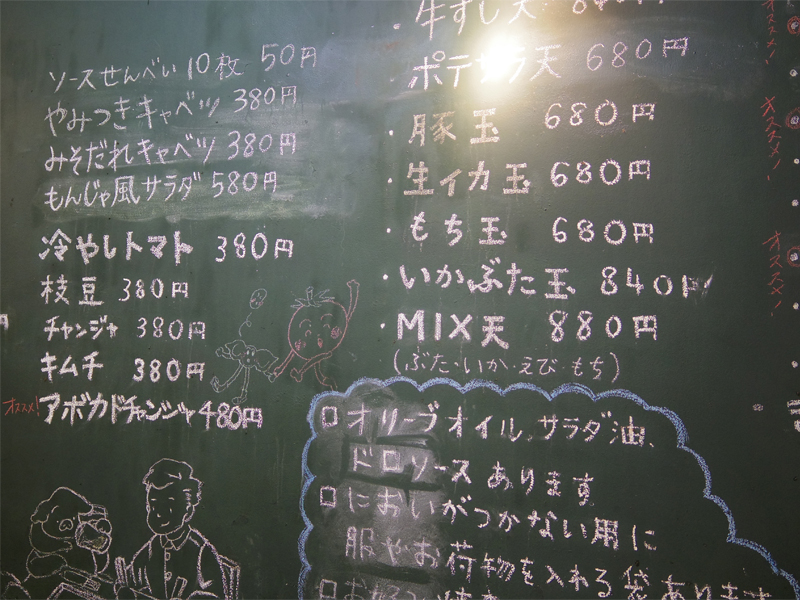 ソースせんべい 10枚 50円
やみつきキャベツ 380円
みそだれキャベツ 380円
もんじゃ風サラダ 580円
冷やしトマト 380円
枝豆 380円
チャンジャ 380円
キムチ 380円
オススメ! アボカドチャンジャ 480円
牛すじ天
ポテサラ天 680円
・豚玉 680円
・生イカ玉 680円
・もち玉 680円
・いかぶた玉 840円
・MIX天 880円
(ぶた・いか・えび・もち)
□オリーブオイル、サラダ油、
ドロソースあります
□においがつかない用に
服やお荷物を入れる袋あります
オススメ!
オススメ!
オススメ!